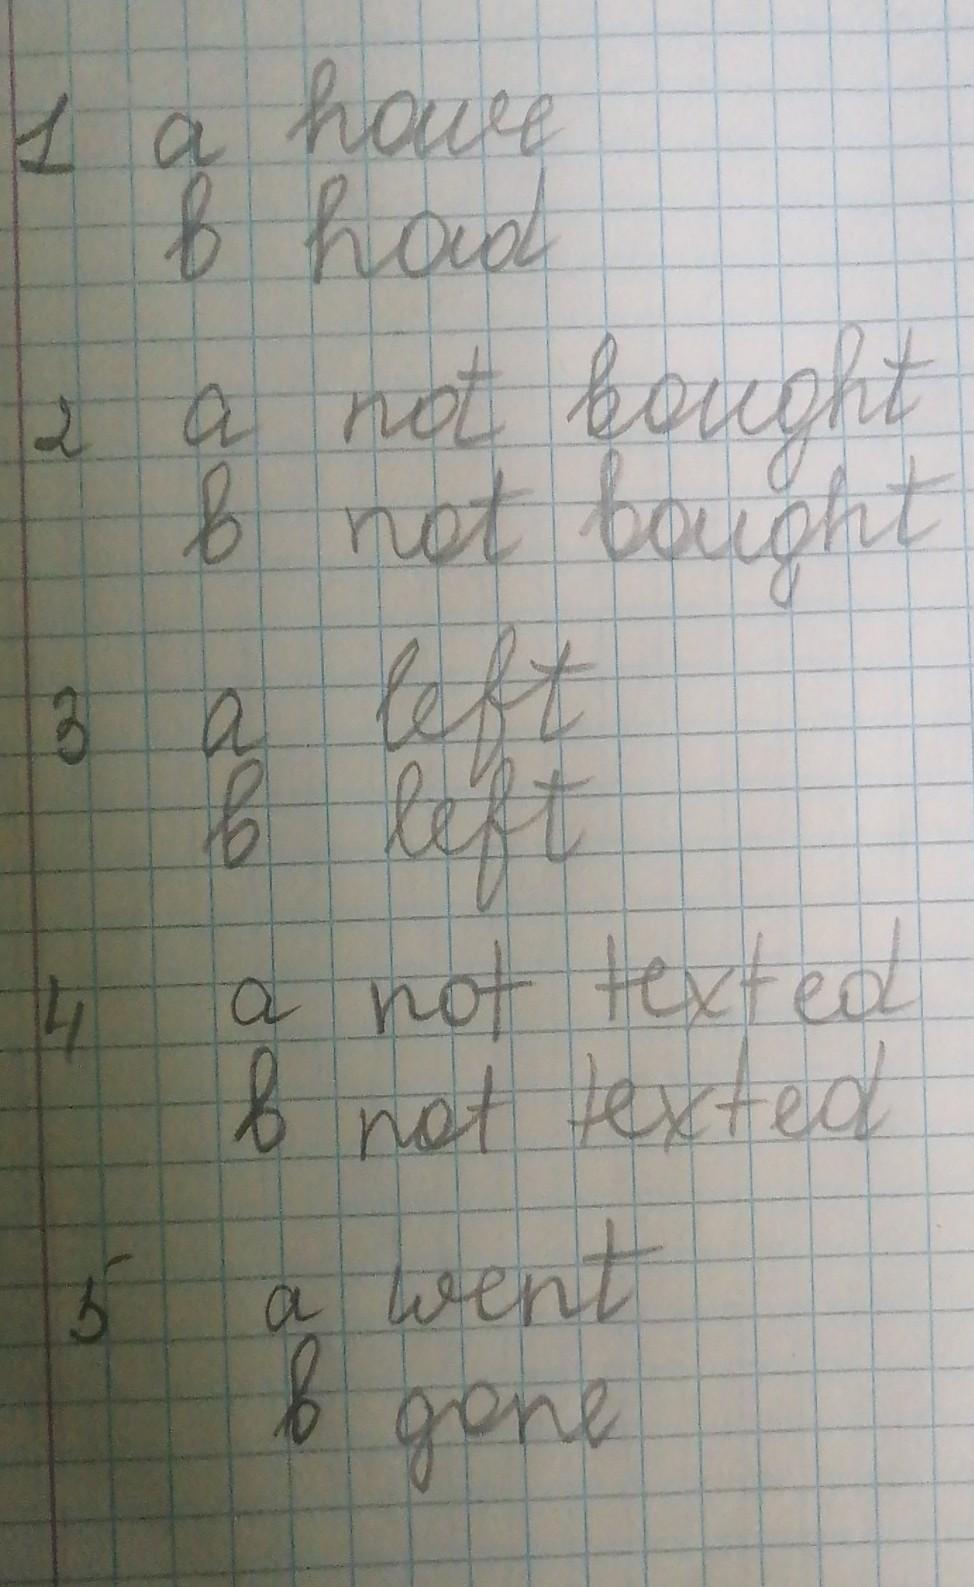 1 a have
b had
2 a not bought
b not bought
3 a left
b left
4 a not texted
b not texted
5 a went
b gone